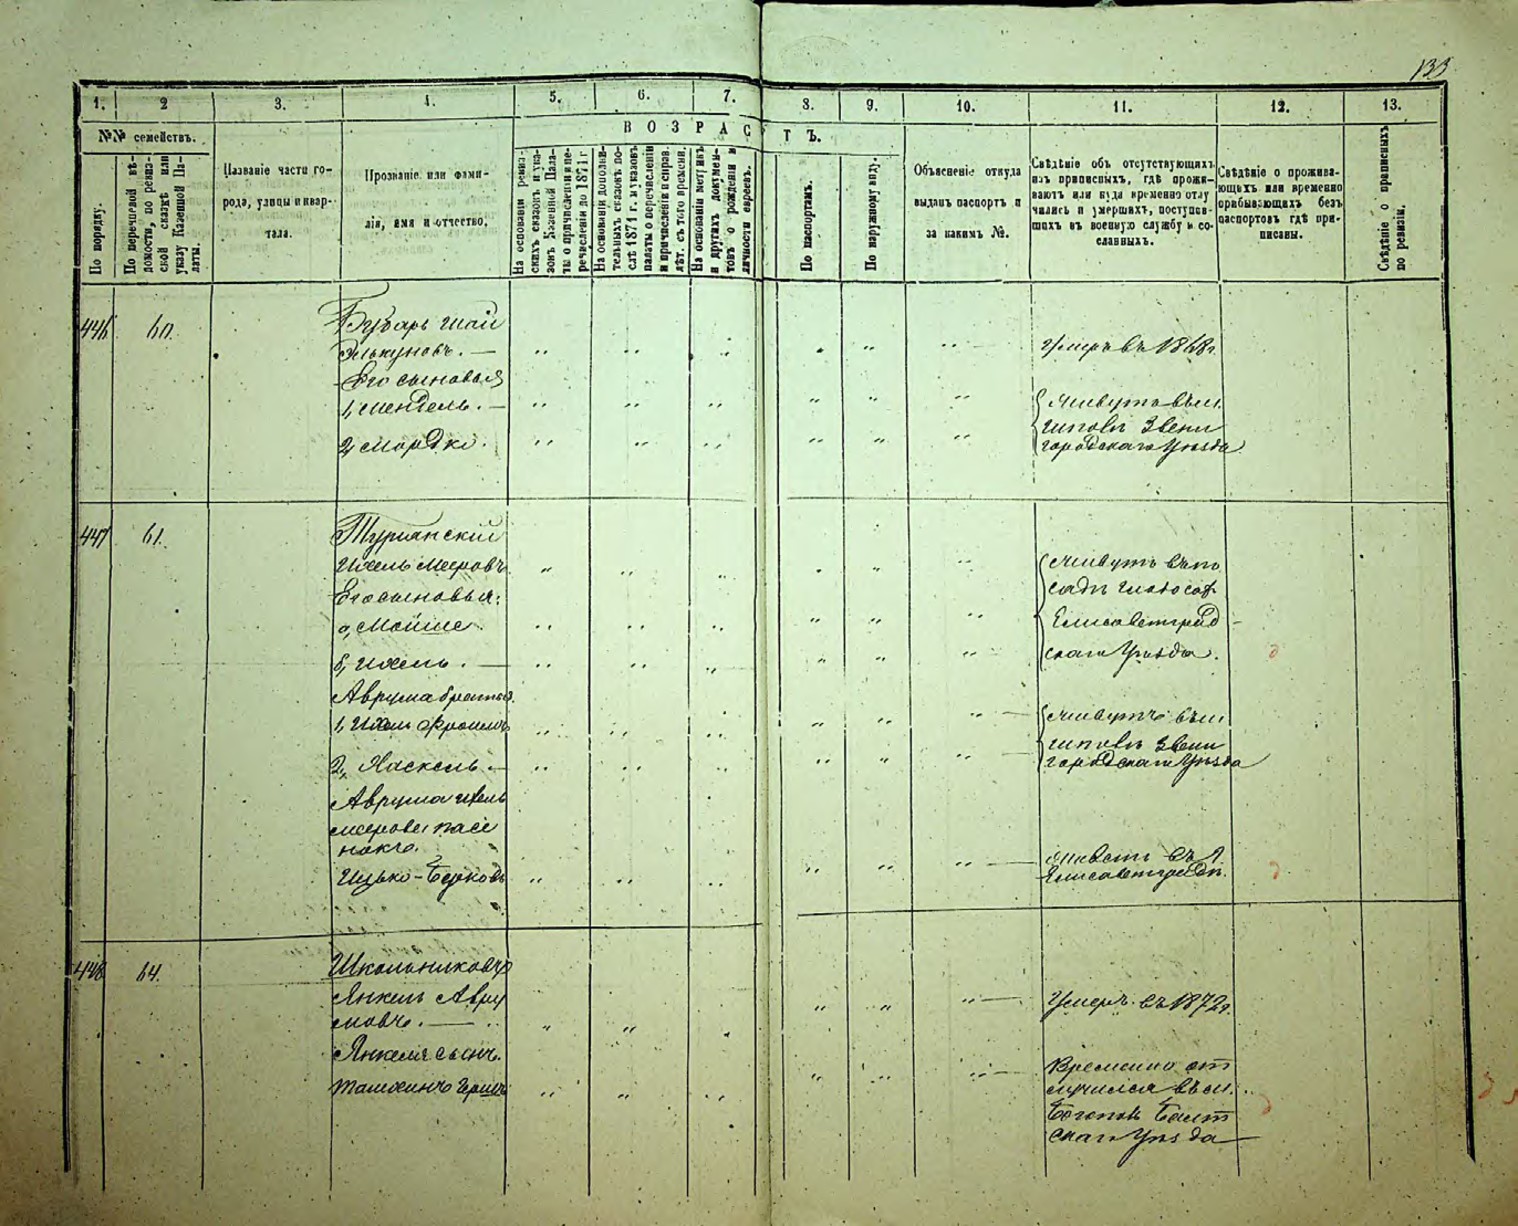 133
1. 2 3. 4. 5. 6. 7. 8. 9. 10. 11. 12. 13.
№№ семействъ.
ВОЗРАСТЪ.
По порядку.
По перечневой вѣ-
домости, по ревиз-
ской сказкѣ или
указу Казенной Па-
латы.
Названіе части го-
рода, улицы и квар-
тала.
Прозваніе или фами-
лія, имя и отчество.
На основаніи ревиз-
скихъ сказокъ и ука-
зовъ Казенной Пала-
ты о причисленіи и пе-
речисленіи до 1871 г
На основаніи дополни-
тельныхъ сказокъ по-
слѣ 1871 г. и указовъ
палаты о перечисленіи
и причисленіи и справ.
лѣт. съ того времени.
На основаніи метрикъ
и другихъ докумен-
товъ о рожденіи и
личности евреевъ.
По паспортамъ.
По наружному виду.
Объясненіе откуда
выданъ паспортъ и
за какимъ №.
Свѣдѣніе объ отсутствующихъ
изъ приписныхъ, гдѣ прожи-
ваютъ или куда временно отлу
чились и умершихъ, поступив-
шихъ въ военную службу и со-
сланныхъ.
Свѣдѣніе о прожива-
ющихъ или временно
прибывающихъ безъ
паспортовъ гдѣ при-
писаны.
Свѣдѣніе о приписныхъ
по ревизіи.
446 60.
Бубарь Шаи
Элькуновъ. —
Умеръ въ 1868 г.
Его сыновья
1, Мендель. —
Живутъ въ м.
Шполѣ Звени
2, Мордко.
городскаго Уѣзда
447 61.
Турианский
Ихель Мееровъ
Живутъ въ по
Его сыновья:
садѣ
а, Мойше.
Елисаветград-
б, Ихель. —
скаго Уѣзда.
Аврума братья.
1, Ихель Фроимовъ
Живутъ въ м
Шполѣ Звени
2, Хаскель. —
городскаго Уѣзда
Аврума Ихель
меерова пасе
нокъ.
Ицько-Берковъ
Живетъ въ г.
Елисаветградѣ.
448 64.
Школьниковъ
Янкель Авру
мовъ. —
Умеръ въ 1872 г.
Янкеля сынъ.
Гершъ
Временно от
лучился въ м.
Богополь Балт
скаго Уѣзда